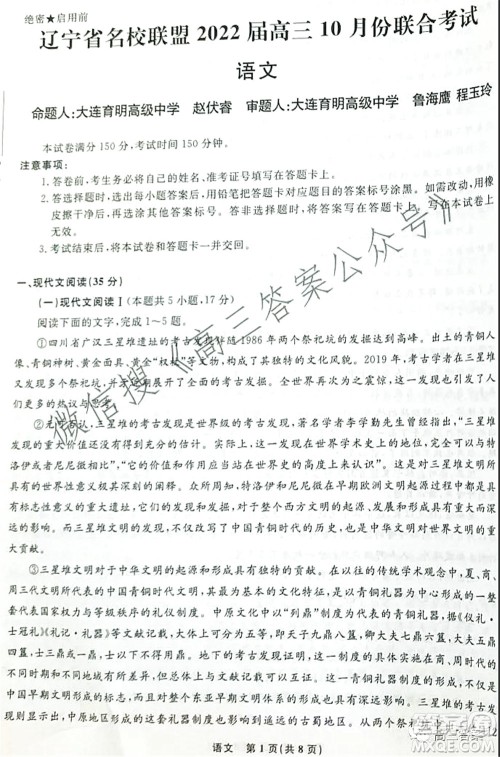 绝密★启用前
辽宁省名校联盟 2022 届高三 10 月份联合考试
语文
命题人:大连育明高级中学 赵伏睿 审题人:大连育明高级中学 鲁海鹰 程玉玲
本试卷满分 150 分,考试时间 150 分钟。
注意事项:
1. 答卷前,考生务必将自己的姓名、准考证号填写在答题卡上。
2. 答选择题时,选出每小题答案后,用铅笔把答题卡对应题目的答案标号涂黑。如需改动,用橡
皮擦干净后,再选涂其他答案标号。答非选择题时,将答案写在答题卡上。写在本试卷上
无效。
3. 考试结束后,将本试卷和答题卡一并交回。
一、现代文阅读(35 分)
(一)现代文阅读Ⅰ(本题共 5 小题,17 分)
阅读下面的文字,完成 1~5 题。
①四川省广汉三星堆遗址的考古发现伴随 1986 年两个祭祀坑的发掘达到高峰。出土的青铜人
像、青铜神树、黄金面具、黄金“权杖”等文物,构成了其独特的文化风貌。2019 年,考古学者在三星堆
又发现多个祭祀坑,并于近期展开了全面的考古发掘。全世界再次为之震惊,这一发现也引发了人
们更多的热议与思考。
②无可否认,三星堆的考古发现是世界级的考古发现,著名学者李学勤先生曾经指出:“三星堆
发现的重大价值还没有得到充分的估计。实际上,这一发现在世界学术史上的地位,完全可以与特
洛伊或者尼尼微相比”,“它的价值和作用应当站在世界的高度上来认识”。这是对三星堆文明所
具有的世界性意义极其深刻的阐释。众所周知,特洛伊和尼尼微在早期欧洲文明发现史上都是具
有标志性意义的重大遗址,对于整个西方文明的溯源、文明特质的形成与发展等方面都产生了深
远的影响。而三星堆文明的发现,不仅改写了中国青铜时代的历史,也是世界文明史上的重大事
件。
③三星堆文明对于中华文明的起源和形成具有重要意义。在以往的传统学术观念中,夏、商、
周三代文明所代表的中国青铜时代,其最为基本的文化特征,是以青铜礼器作为礼制的核心的一整
套代表国家权力与等级秩序的礼仪制度。中原文化中以“列鼎”制度为代表的青铜礼器,据《仪礼·
士冠礼》《礼记·礼器》等文献记载,大体上可分为五等,即天子九鼎八簋,卿大夫七鼎六簋,大夫五鼎
四簋,士三鼎二簋,士以下不得用鼎。地下的考古发现证明,这一制度的具体实施在商、周时代的
不同时期和不同地域有所差别,但总体上与文献记载可以契合。青铜礼器制度的形成,不仅是
中国早期文明形成的标志,而且对整个东亚早期文明体系的形成也具有深远影响。三星堆的发
现显示出,中原地区形成的这套青铜礼器制度影响到遥远的古蜀地区。从
语文 第 1 页(共 8 页)
微信搜《高三答案公众号》